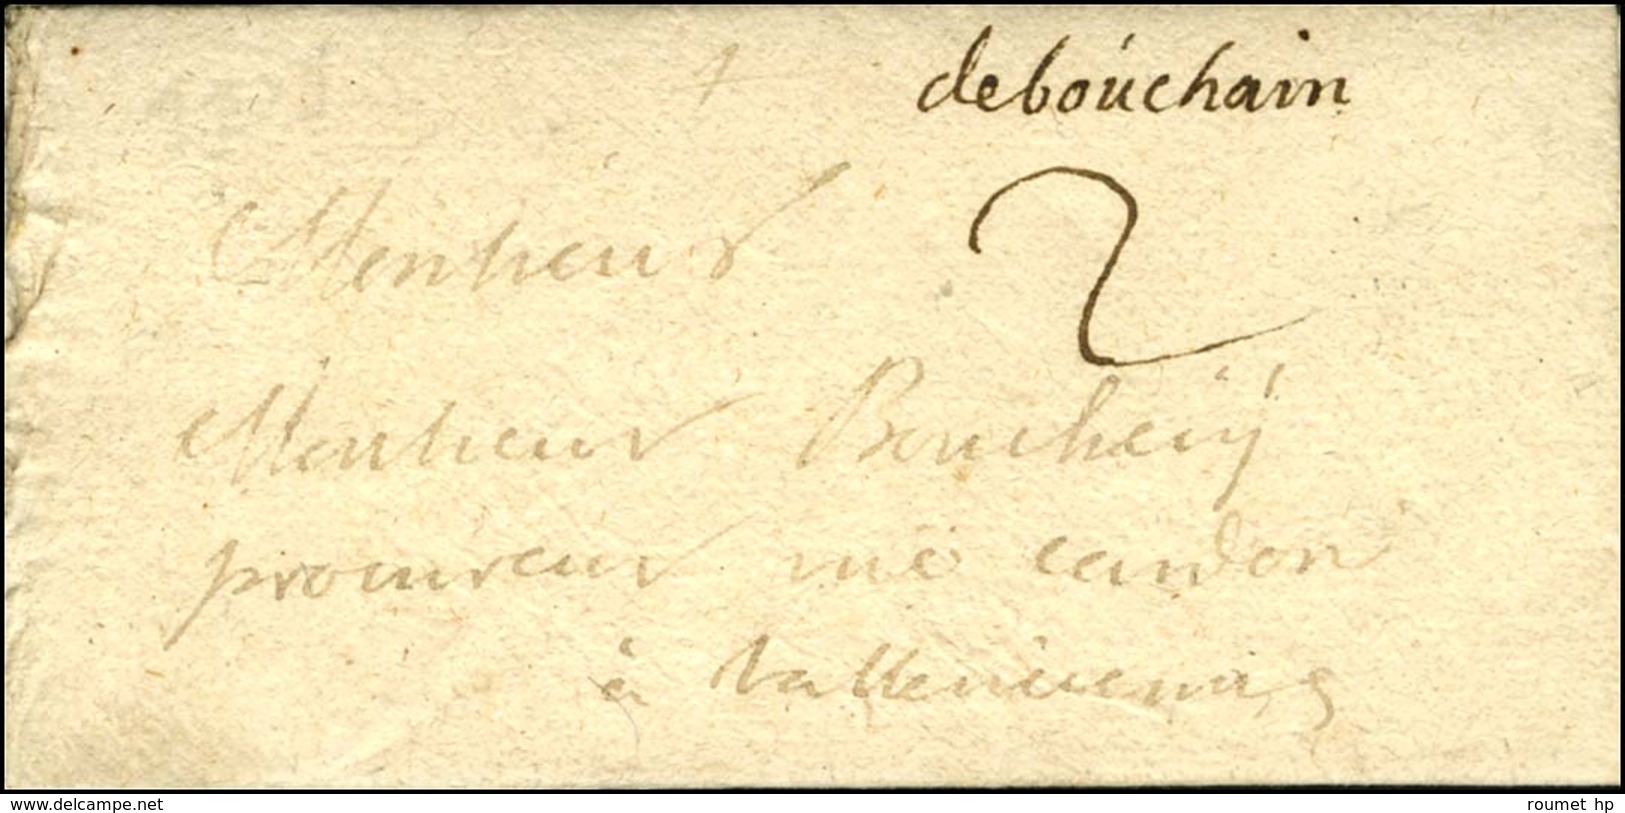 debouchain
2
Monsieur
Monsieur Bouchery
procureur
à Vallenciennes
www.delcampe.net
roumet hp